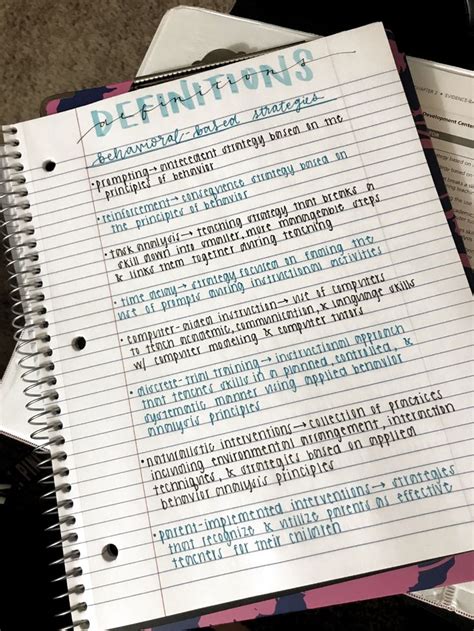 DEFINITIONS
definitions
CHAPTER 2 • EVIDENCE
Development Center
behavioral-based strategies
•prompting→antecedent strategy based on the
principles of behavior
•reinforcement→consequence strategy based on
the principles of behavior
•task analysis→teaching strategy that breaks a
skill down into smaller, more manageable steps
& links them together during teaching
•time delay→strategy focused on fading the
use of prompts during instructional activities
•computer-aided instruction→use of computers
to teach academic, communication, & language skills
w/ computer modeling & computer tutors
•discrete-trial training→instructional approach
that teaches skills in a planned, controlled, &
systematic manner using applied behavior
analysis principles
•naturalistic interventions→collection of practices
including environmental arrangement, interaction
techniques, & strategies based on applied
behavior analysis principles
•parent-implemented interventions→strategies
that recognize & utilize parents as effective
teachers for their children